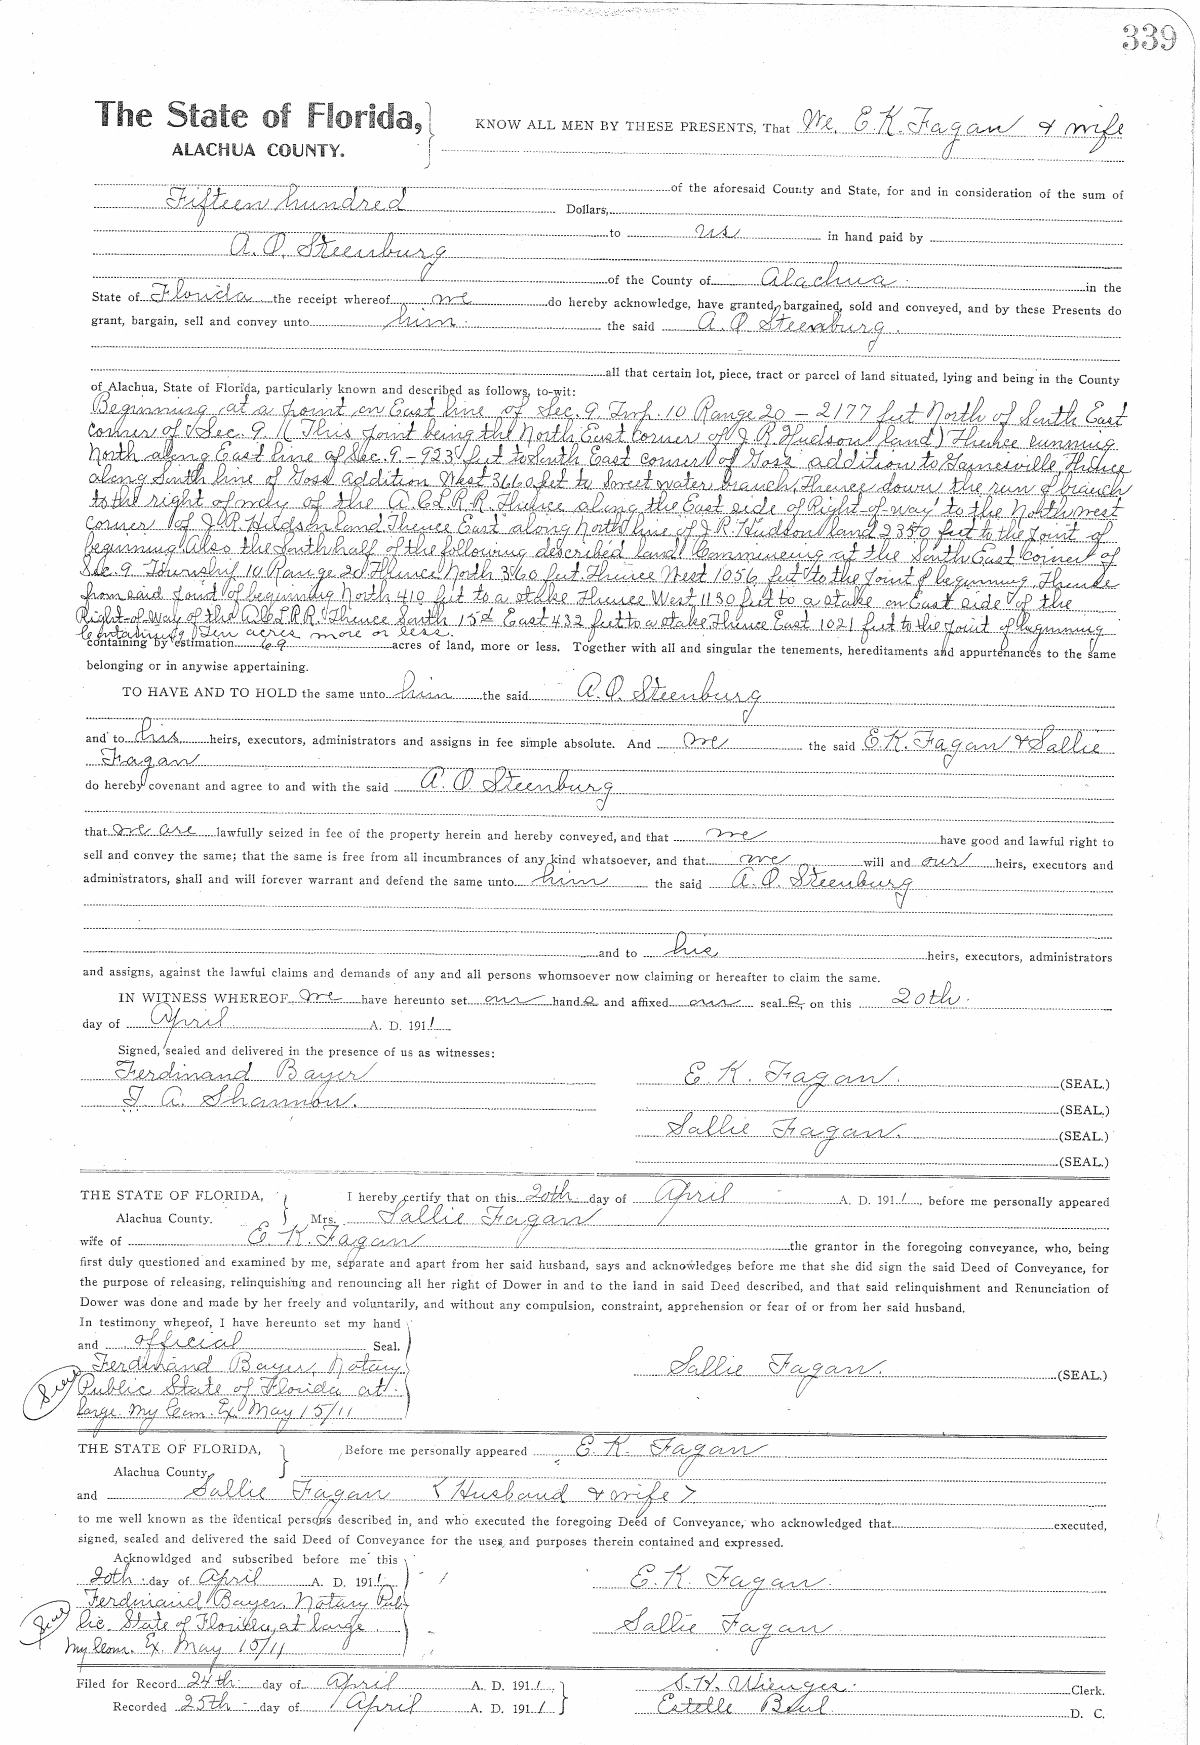 339
The State of Florida, KNOW ALL MEN BY THESE PRESENTS, That We, E. K. Fagan & wife
ALACHUA COUNTY.
of the aforesaid County and State, for and in consideration of the sum of
Fifteen hundred Dollars,
to us in hand paid by
A. O. Steenburg
of the County of Alachua in the
State of Florida the receipt whereof we do hereby acknowledge, have granted, bargained, sold and conveyed, and by these Presents do
grant, bargain, sell and convey unto him the said A. O Steenburg.
all that certain lot, piece, tract or parcel of land situated, lying and being in the County
of Alachua, State of Florida, particularly known and described as follows, to-wit:
Beginning at a point on East line of Sec. 9 Twp. 10 Range 20 - 2177 feet North of South East
corner of Sec. 9 (This point being the North East corner of J. R. Hudson land) Thence running
North along East line of Sec. 9 - 923 feet to South East corner of Goss addition to Gainesville, Thence
along South line of Goss addition West 3660 feet to Sweet water branch, Thence down the run of branch
to the right of way of the A. C. L. R. R. Thence along the East side of Right-of-way to the North west
corner of J. R. Hudson land Thence East along North line of J. R. Hudson land 2350 feet to the point of
beginning. Also the South half of the following described land Commencing at the South East corner of
Sec. 9 Township 10 Range 20 Thence North 360 feet Thence West 1056 feet to the point of beginning Thence
from said point of beginning North 410 feet to a stake Thence West 1130 feet to a stake on East side of the
Right-of-Way of the A. C. L. R. R. Thence South 15d East 432 feet to a stake Thence East 1021 feet to the point of beginning
Containing Ten acres more or less.
containing by estimation 69 acres of land, more or less. Together with all and singular the tenements, hereditaments and appurtenances to the same
belonging or in anywise appertaining.
TO HAVE AND TO HOLD the same unto him the said A. O. Steenburg
and to his heirs, executors, administrators and assigns in fee simple absolute. And we the said E. K. Fagan & Sallie
Fagan
do hereby covenant and agree to and with the said A. O. Steenburg
that we are lawfully seized in fee of the property herein and hereby conveyed, and that we have good and lawful right to
sell and convey the same; that the same is free from all incumbrances of any kind whatsoever, and that we will and our heirs, executors and
administrators, shall and will forever warrant and defend the same unto him the said A. O. Steenburg
and to his heirs, executors, administrators
and assigns, against the lawful claims and demands of any and all persons whomsoever now claiming or hereafter to claim the same.
IN WITNESS WHEREOF, we have hereunto set our hands and affixed our seals on this 20th.
day of April A. D. 1911
Signed, sealed and delivered in the presence of us as witnesses:
Ferdinand Bayer E. K. Fagan. (SEAL.)
T. A. Shannon. (SEAL.)
Sallie Fagan. (SEAL.)
(SEAL.)
THE STATE OF FLORIDA, I hereby certify that on this 20th day of April A. D. 1911, before me personally appeared
Alachua County. Mrs. Sallie Fagan
wife of E. K. Fagan the grantor in the foregoing conveyance, who, being
first duly questioned and examined by me, separate and apart from her said husband, says and acknowledges before me that she did sign the said Deed of Conveyance, for
the purpose of releasing, relinquishing and renouncing all her right of Dower in and to the land in said Deed described, and that said relinquishment and Renunciation of
Dower was done and made by her freely and voluntarily, and without any compulsion, constraint, apprehension or fear of or from her said husband.
In testimony whereof, I have hereunto set my hand
and official Seal.
Ferdinand Bayer, Notary Sallie Fagan. (SEAL.)
Seal Public State of Florida at
large. My Com. Ex. May 15/11
THE STATE OF FLORIDA, Before me personally appeared E. K. Fagan
Alachua County
and Sallie Fagan (Husband & wife)
to me well known as the identical persons described in, and who executed the foregoing Deed of Conveyance, who acknowledged that executed,
signed, sealed and delivered the said Deed of Conveyance for the uses and purposes therein contained and expressed.
Acknowldged and subscribed before me this
20th day of April A. D. 1911 E. K. Fagan.
Ferdinand Bayer, Notary Pub
Seal lic. State of Florida, at large Sallie Fagan
My Com. Ex. May 15/11
Filed for Record 24th day of April A. D. 1911 S. H. Wienges. Clerk.
Recorded 25th day of April A. D. 1911 Estelle D. C.